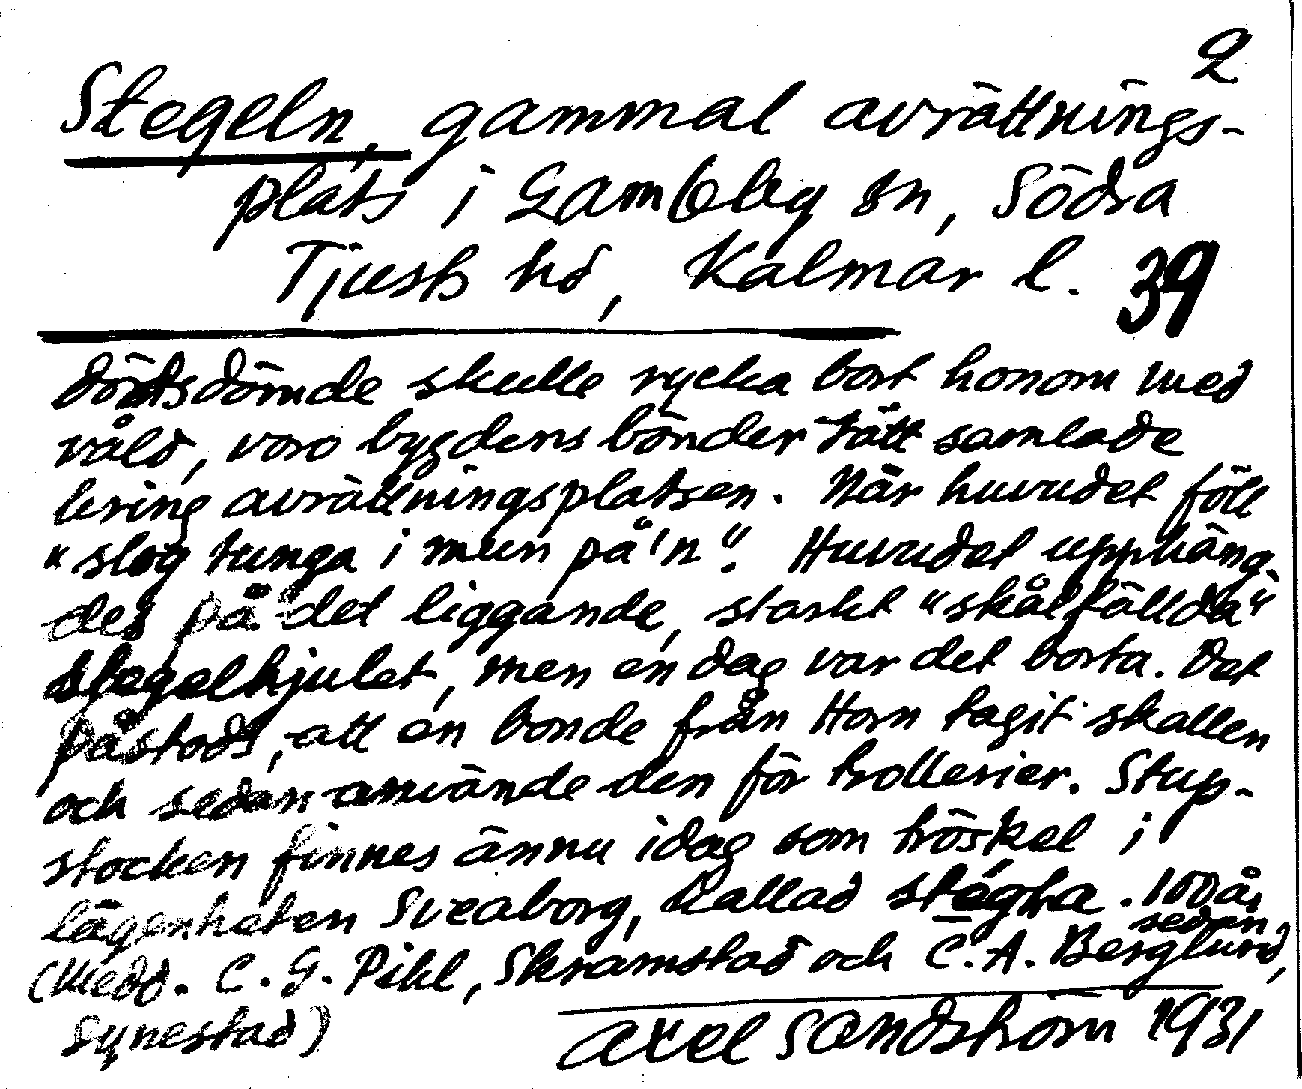 2
Stegeln, gammal avrättnings-
plats i Gamleby sn, Södra
Tjusts hd, Kalmar l. 39
dödsdömde skulle rycka bort honom med
våld, voro bygdens bönder tätt samlade
kring avrättningsplatsen. När huvudet föll
"slog tunga i mun på'n". Huvudet upphäng-
des på det liggande, starkt "skålfällda"
stegelhjulet, men en dag var det borta. Det
påstods, att en bonde från Horn tagit skallen
och sedan använde den för trollerier. Stup-
stocken finnes ännu idag som tröskel i
lägenheten Sveaborg, kallad stégla. 100 år
sedan
(Medd. C. G. Pihl, Skramstad och C. A. Berglund,
Synestad)
Axel Sandström 1931